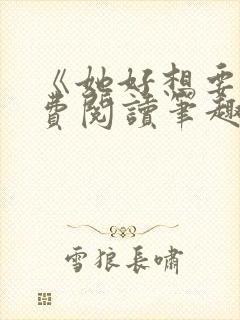 《她好想要
费阅读笔趣
雪狼长啸